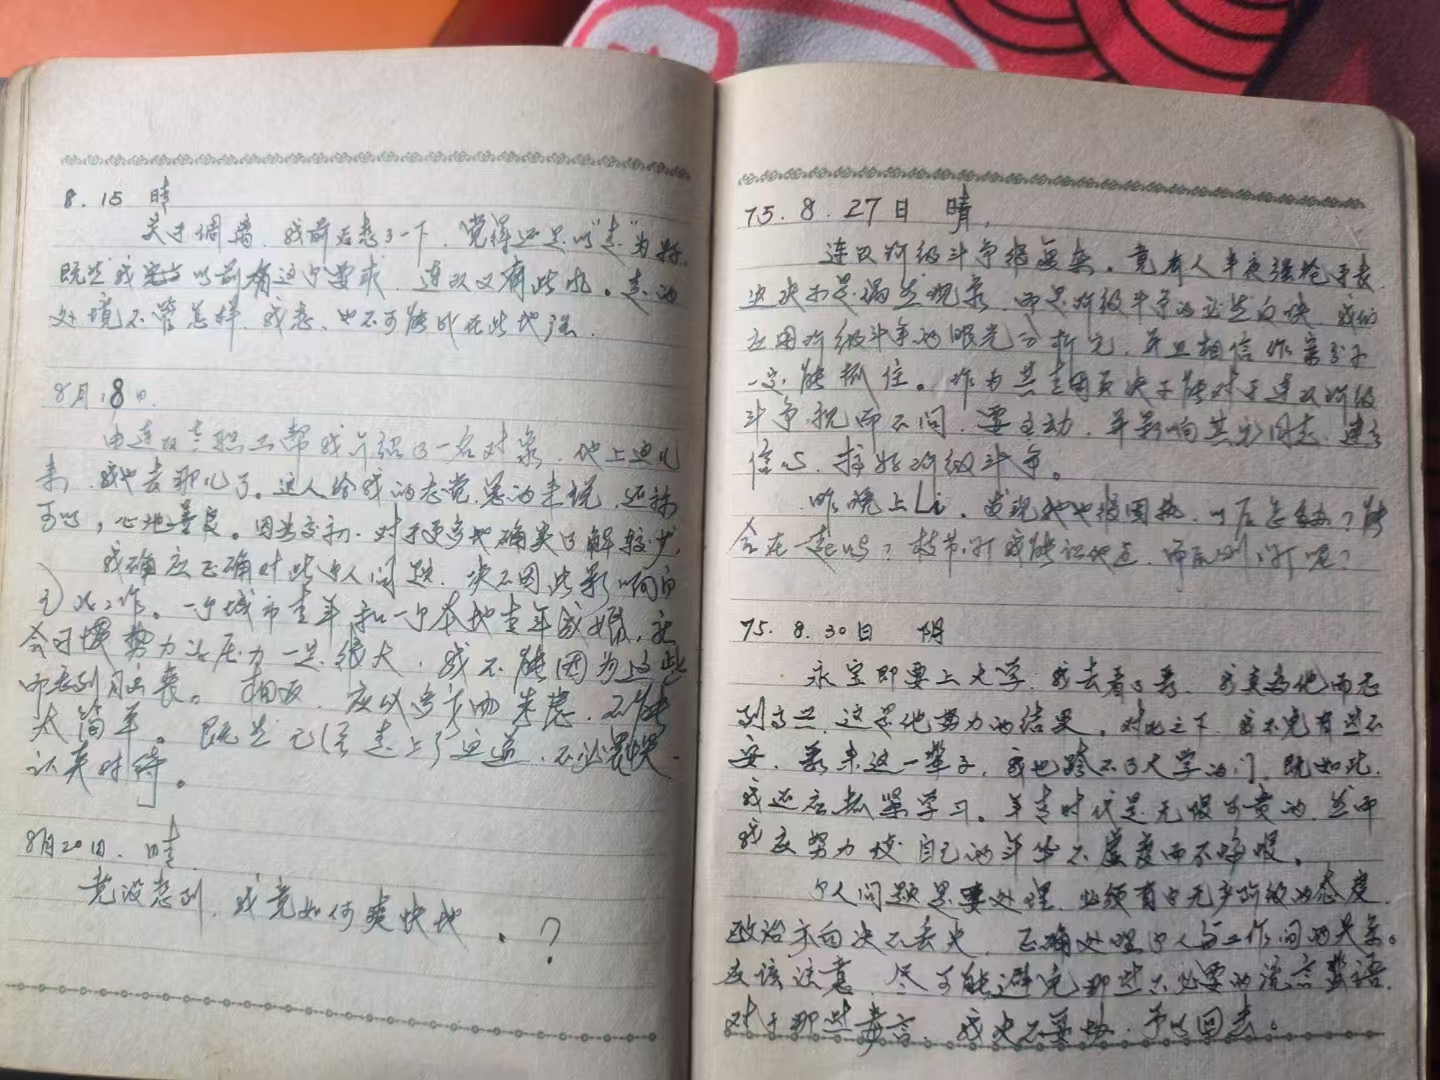 8.15 晴
关于调离，我前后想了一下，觉得还是以"走"为好，
既然我以前有这个要求，连队又有此机。走的
处境不管怎样，我想，也不可能比在此地强。
8月18日
由连队老职工帮我介绍了一名对象，他上这儿
来，我也去那儿了。这人给我的感觉总的来说，还称
可以，心地善良。因为交初，对于更多地确实了解较少，
我确应正确对此个人问题，决不因此影响自
己工作。一个城市青年和一个本地青年成婚，社
会习惯势力的压力一定很大，我不能因为这些
而感到月亮。相反，应从多方面考虑，不能
太简单。既然已经走上了这道，不必畏惧，
认真对待。
8月20日. 晴.
竟没想到，我竟如何爽快地 。？
75.8.27日 晴，
连队阶级斗争很复杂。竟有人半夜强抢手表，
这决不是偶然现象，而是阶级斗争的必然反映，我们
应用阶级斗争的眼光分析它，并且相信作案分子
一定能抓住。作为共青团员决不能对于连队阶级
斗争视而不问，要主动，并影响其他同志，建立
信心，抓好阶级斗争。
昨晚上Li，发现她也很固执，以后怎么办？能
合在一起吗？枝节问题我能认她点，而原则问题呢？
75.8.30日 阴
永宝即要上大学，我去看了看，我真为他而感
到高兴，这是他努力的结果。对比之下，我不免有些不
安，看来这一辈子，我也跨不了大学的门，既如此，
我还应抓紧学习。年青时代是无限可贵的，其中
我应努力使自己的年华不虚度而不悔恨。
个人问题是要处理，必须有由无产阶级的态度，
政治方向决不丢失，正确处理个人与工作间的关系。
应该注意，尽可能避免那些不必要的流言蜚语，
对于那些毒言，我决不妥协，予以回击。